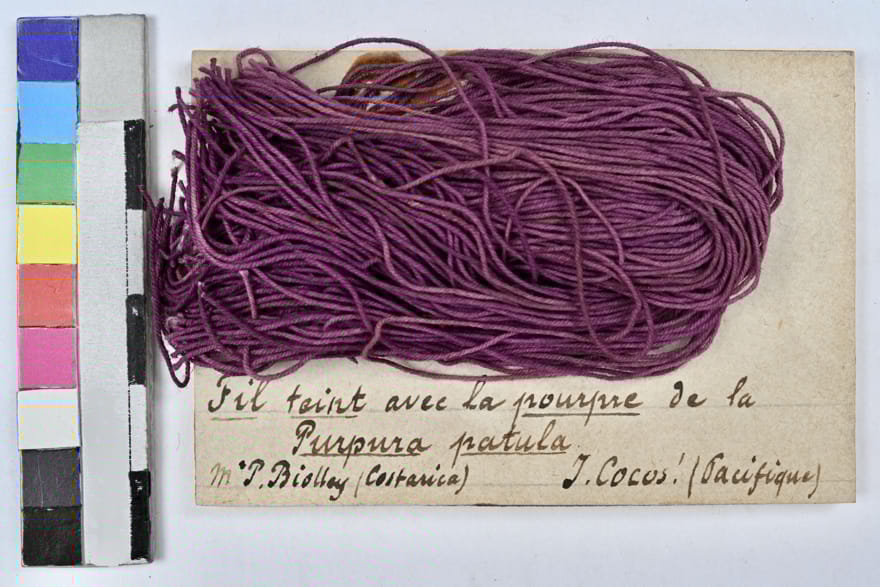 Fil teint avec la pourpre de la
Purpura patula.
Mr P. Biolley (Costarica) I. Cocos! (Pacifique)